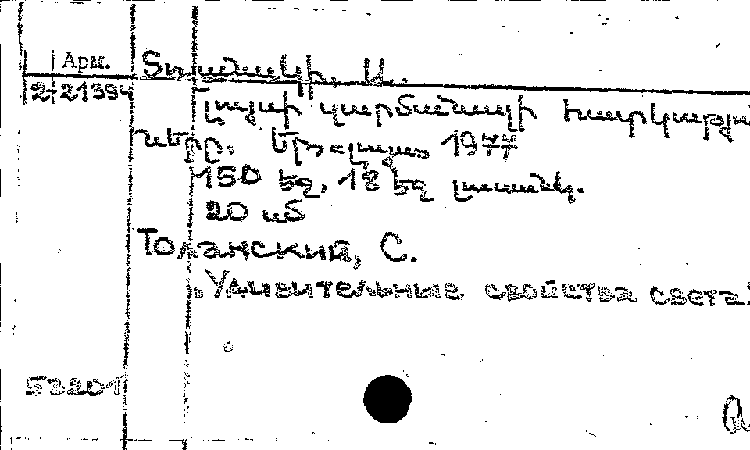 Арм.
2-21394
Տոլանսկի, Ս.
Լույսի զարմանալի հատկությ
Երևան 1977
150 էջ, 12 էջ լուսանկ.
20 սմ
Толанский, С.
Удивительные свойства света.
52201